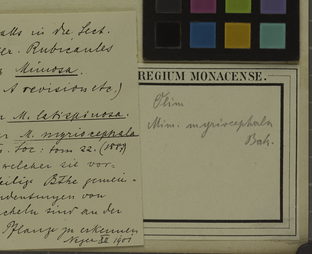 alls in die Sect.
er. Rubicaules
Mimosa.
A revision etc.)
r M. latispinosa.
er M. myriocephala
. Soc: tom 22. (1887)
welcher sie vor-
Blthe gemein-
ndeutungen von
cheln sind an der
Pflanze zu erkennen
1901
REGIUM MONACENSE.
Olim
Mim. myriocephala